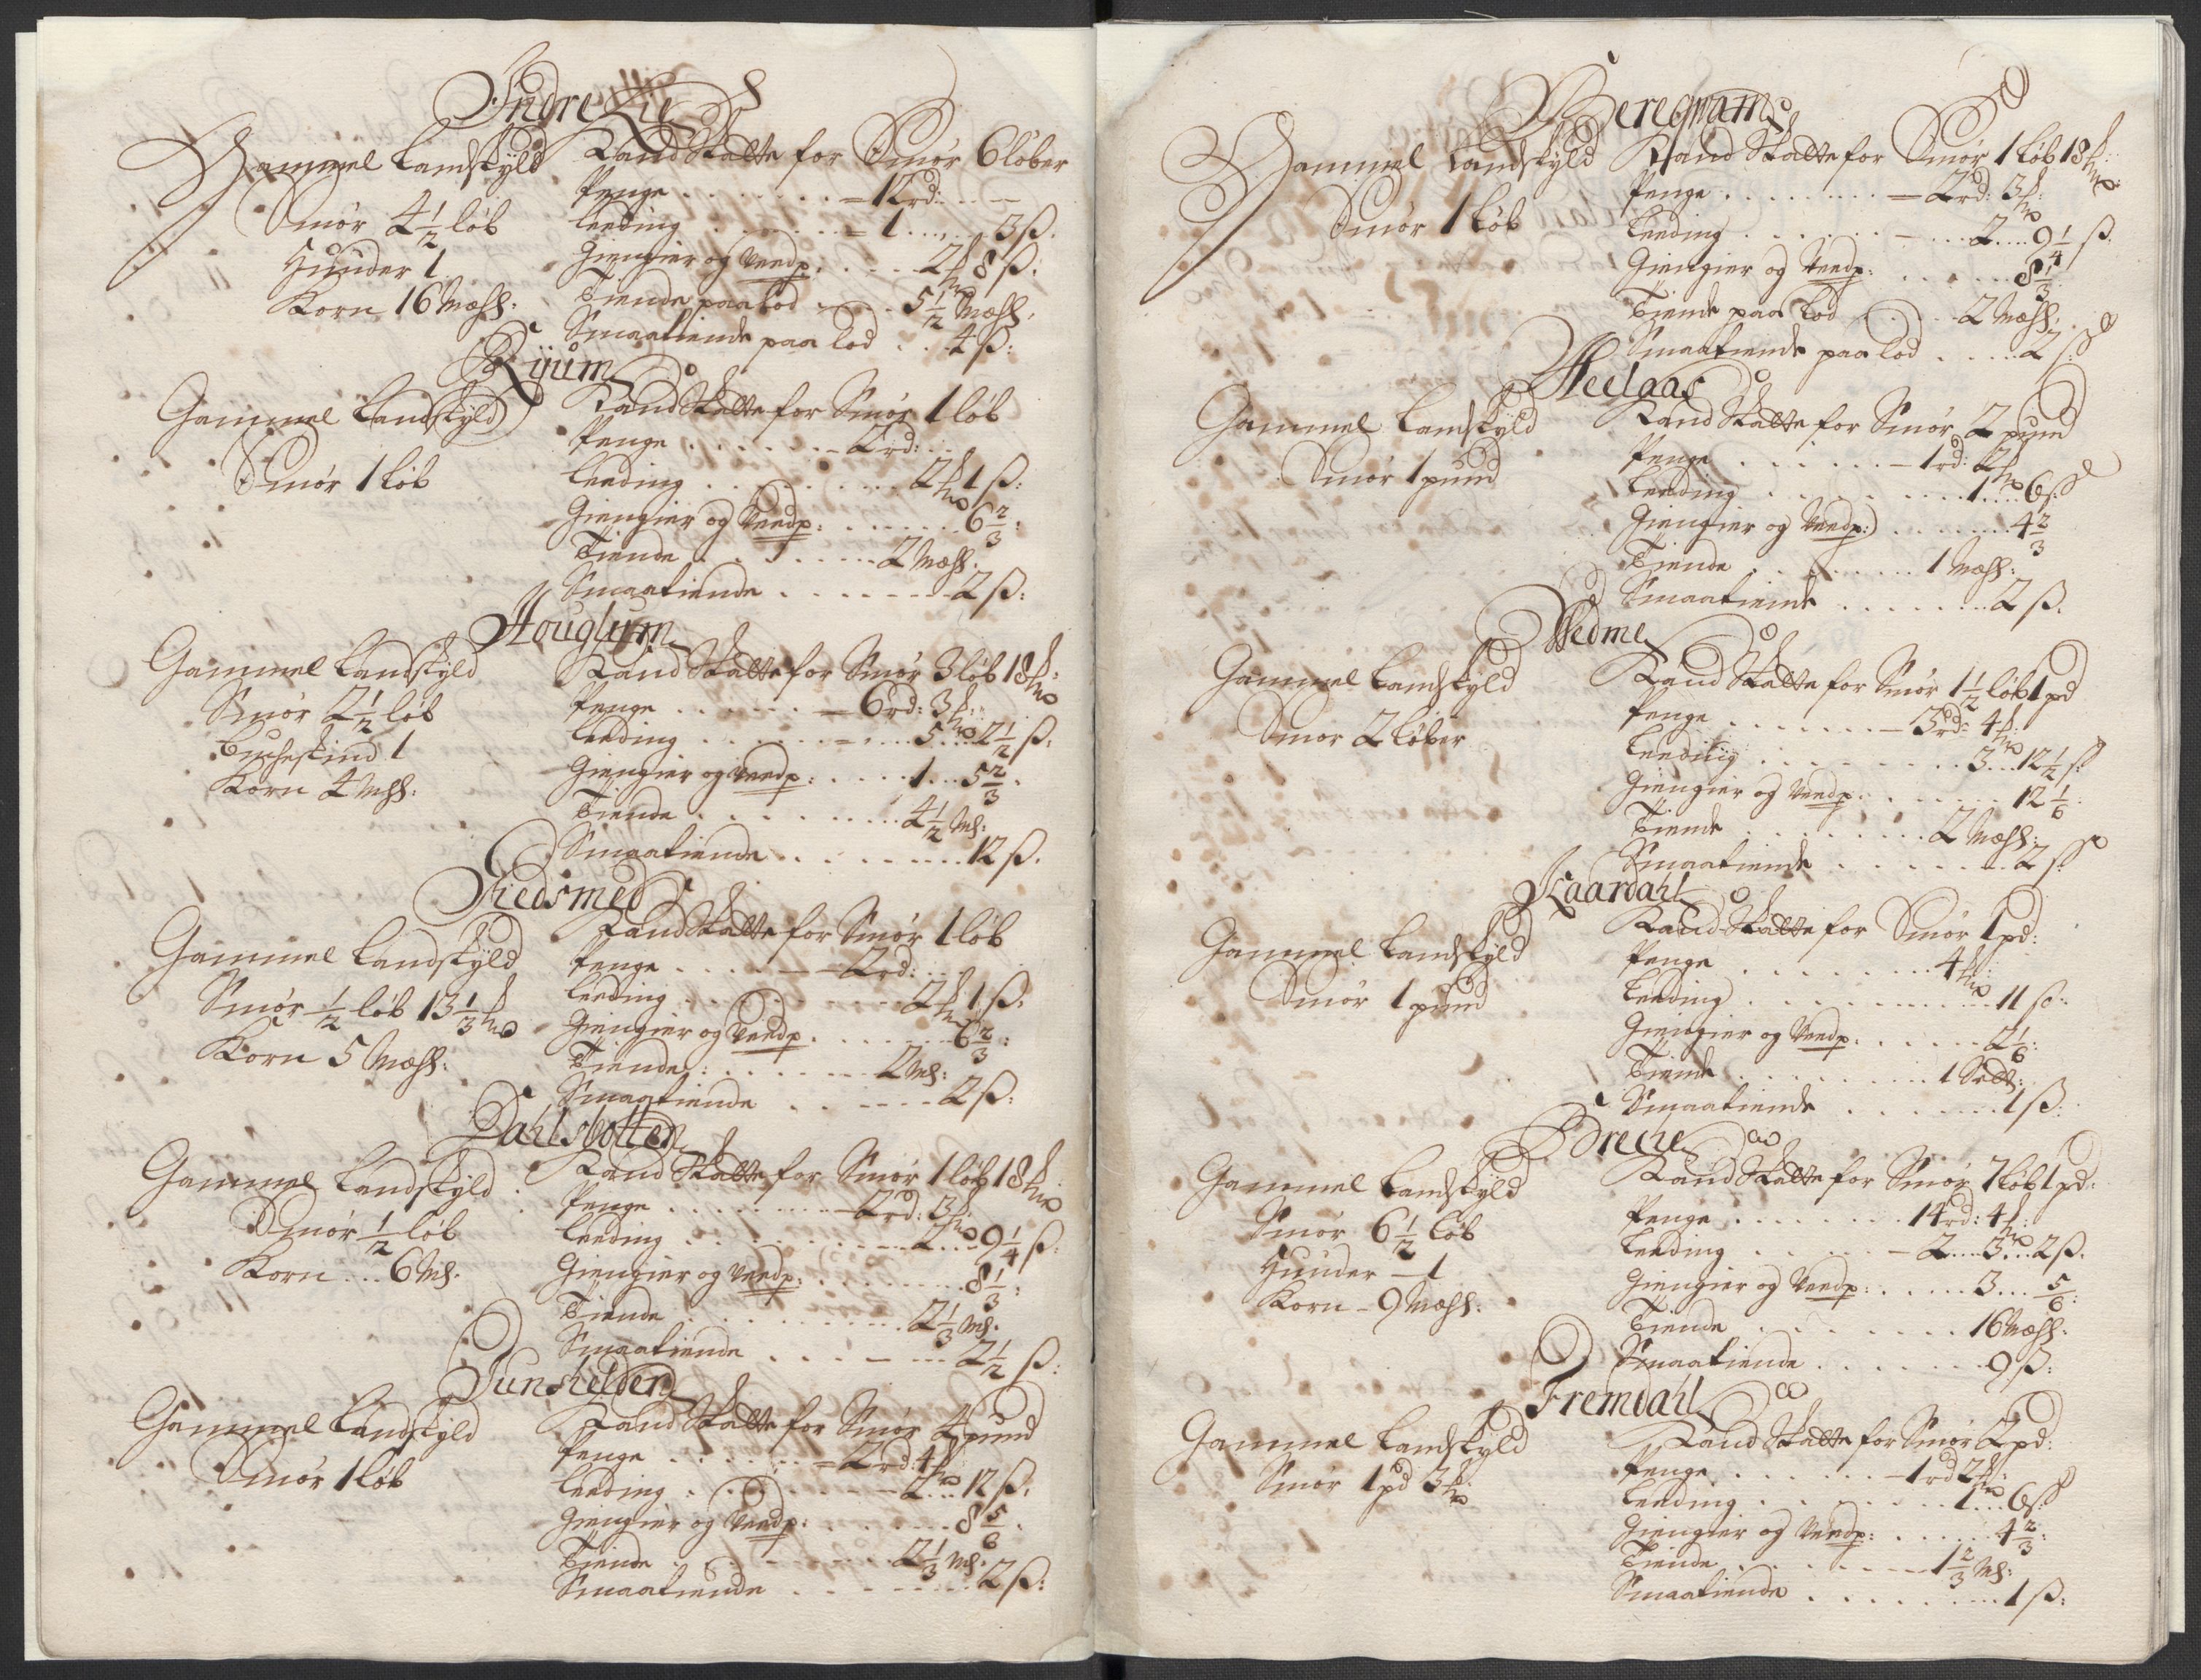 Indre Lie
Gammel Landskyld
Smör 4 1/2 löb
Huuder 1
Korn 16 Mæhl:
Land Skatte for Smör 6 löber
Penge . . . . . . . = 12 rd: . . –
Leeding . . . . . . = 1 . . . . . . 3 ß.
Giengier og Veedp: . . . . 2 mk 8 ß:
Tiende paa Lod . . . . 5 1/2 Mæhl:
Smaatiende paa Lod . . 4 ß:
Rÿum
Gammel Landskyld
Smör 1 löb
Land Skatte for Smör 1 löb
Penge . . . . . . . – 2 rd: . .
Leeding . . . . . . . . . 2 mk 1 ß:
Giengier og Veedp: . . . . . . 6 2/3 :
Tiende . . . . . . . . 2 Mæhl.
Smaatiende . . . . . . – 2 ß:
Houglum
Gammel Landskyld
Smör 2 1/2 löb
Buckeskind 1
Korn 4 Mhl:
Land Skatte for Smör 3 löb 18 mk:
Penge . . . . . . = 6 rd: 3 mk:
Leeding . . . . . . = . . . 5 . . . 2 1/2 ß.
Giengier og Veedp: . . . . . 1 . . . 5 2/3 .
Tiende . . . . . . . . . 4 1/2 Ml:
Smaatiende . . . . . . . . 12 ß.
Gammel Landskyld
Smör 1/2 löb 13 1/3 mk
Korn 5 Mæhl:
Land Skatte for Smör 1 löb
Penge . . . . – – 2 rd: . . .
Leeding . . . . . . . . . 2 mk 1 ß.
Giengier og Veedp . . . . . . . 6 2/3 :
Tiende : . . . . . . . . 2 Ml:
Smaatiende . . . – – – – 2 ß:
Dahlsbotten
Gammel Landskyld
Smör 1/2 löb
Korn . . . 6 Ml.
Land Skatte for Smör 1 löb 18 mk
Penge . . . . . . . . – 2 rd: 3 mk
Leeding . . . . . . . . – 2 . . . 9 1/4 ß:
Giengier og Veedp: . . . . . . . . 8 1/3 :
Tiende . . . . . . . . . . 2 1/3 Ml.
Smaatiende . . . . – . . . 2 1/2 ß:
Gammel Landskyld
Smör 1 löb
Land Skatte for Smör 4 pund
Penge . . . . . . . = 2 rd: 4 mk
Leeding : . . . . . . . – 2 . . . 12 ß.
Giengier og Veedp: . . . . . . . 8 5/6 .
Tiende . . . . . . . . . 2 1/3 Ml.
Smaatiende . . . . . . . . 2 ß:
Beregvam
Gammel Landskyld
Smör 1 löb
Land Skatte for Smör 1 löb 18 mk:
Penge . . . . . . . . – 2 rd: 3 mk:
Leeding . . . . . . – . . . 2 . . . . 9 1/4 ß.
Giengier og Veedp: . . . . . . . 8 1/3 .
Tiende paa Lod . . . . – 2 Mæhl:
Smaatiende paa Lod . . . . . 2 ß:
Helgaas
Gammel Landskyld
Smör 1 pund
Land Skatte for Smör 2 pund
Penge . . . . . . . – 1 rd: 2 mk
Leeding . . . . . . . . . . 1 . . . 6 ß:
Giengier og Veedp: . . . . . . . 4 2/3
Tiende . . . . . . . . . 1 Mæhl:
Smaatiende . . . . . . . . 2 ß.
Hedme
Gammel Landskyld
Smör 2 löber
Land Skatte for Smör 1 1/2 löb 1 pd
Penge . . . . . . . . – 3 rd: 4 mk:
Leeding . . . . . . . . . . 3 . . . 12 1/2 ß:
Giengier og Veedp: . . . . . . . 12 1/6 :
Tiende . . . . . . . . . 2 Mæhl:
Smaatiende . . . . . . . . . 2 ß:
Kaardahl
Gammel Landskyld
Smör 1 pund
Land Skatte for Smör 1 pd:
Penge . . . . . . . . . 4 mk:
Leeding . . . . . . . . . . . . 11 ß:
Giengier og Veedp: . . . . . . 2 1/6 :
Tiende . . . . . . . . . . 1 Sedt:
Smaatiende . . . . . . . 1 ß:
Brecke
Gammel Landskyld
Smör 6 1/2 löb
Huuder – 1
Korn – 9 Mæhl:
Land Skatte for Smör 7 löb 1 pd:
Penge . . . . . . . . 14 rd: 4 mk:
Leeding . . . . . . – 2 . . . . 3 . . . 2 ß.
Giengier og Veedp: . . . . . . 3 . . . 5/6 :
Tiende . . . . . . . . . . 16 Mæhl:
Smaatiende . . . . . . . 9 ß:
Fremdahl
Gammel Landskyld
Smör 1 pd 3 mk
Land Skatte for Smör 2 pd:
Penge . . . . . . . – 1 rd 2 mk:
Leeding . . . . . . . . . . 1 . . . 6 ß:
Giengier og Veedp: . . . . . . 4 2/3 :
Tiende . . . . . . . . 1 2/3 Ml:
Smaatiende . . . . . . . . . . 1 ß: